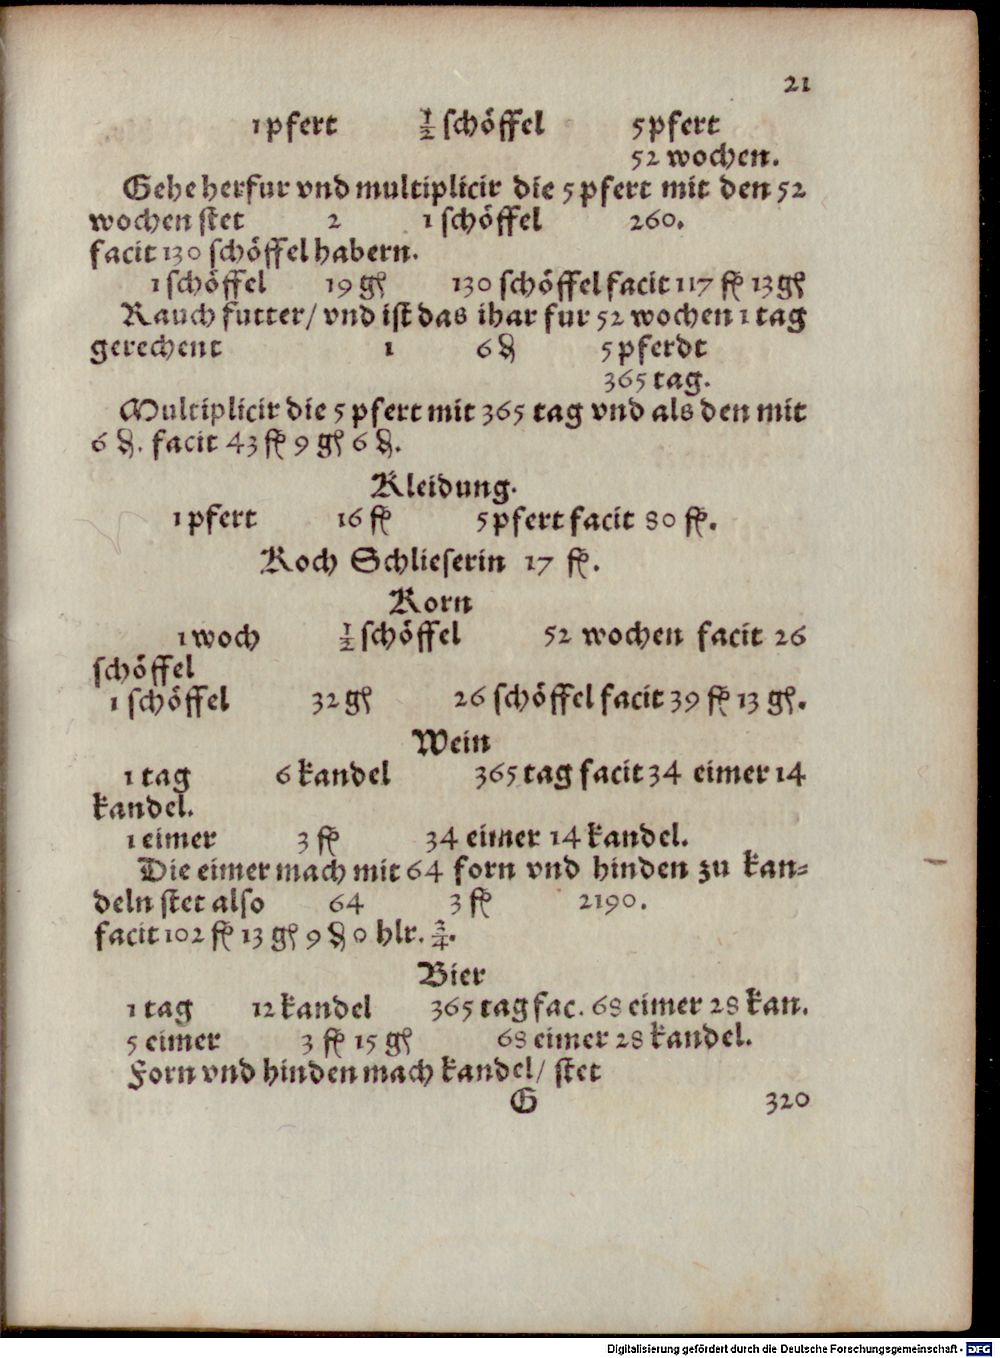 21
1 pfert ½ schöffel 5 pfert
52 wochen.
Gehe herfur vnd multiplicir die 5 pfert mit den 52
wochen stet 2 1 schöffel 260.
facit 130 schöffel habern.
1 schöffel 19 gß 130 schöffel facit 117 fl 13 gß
Rauch futter/ vnd ist das ihar fur 52 wochen 1 tag
gerechent 1 6 ₰ 5 pferdt
365 tag.
Multiplicir die 5 pfert mit 365 tag vnd als den mit
6 ₰. facit 43 fl 9 gß 6 ₰.
Kleidung.
1 pfert 16 fl 5 pfert facit 80 fl.
Koch Schlieserin 17 fl.
Korn
1 woch ½ schöffel 52 wochen facit 26
schöffel
1 schöffel 32 gß 26 schöffel facit 39 fl 13 gß.
Wein
1 tag 6 kandel 365 tag facit 34 eimer 14
kandel.
1 eimer 3 fl 34 eimer 14 kandel.
Die eimer mach mit 64 forn vnd hinden zu kan-
deln stet also 64 3 fl 2190.
facit 102 fl 13 gß 9 ₰ 0 hlr. ¾.
Bier
1 tag 12 kandel 365 tag fac. 68 eimer 28 kan.
5 eimer 3 fl 15 gß 68 eimer 28 kandel.
Forn vnd hinden mach kandel/ stet
G 320
Digitalisierung gefördert durch die Deutsche Forschungsgemeinschaft - DFG